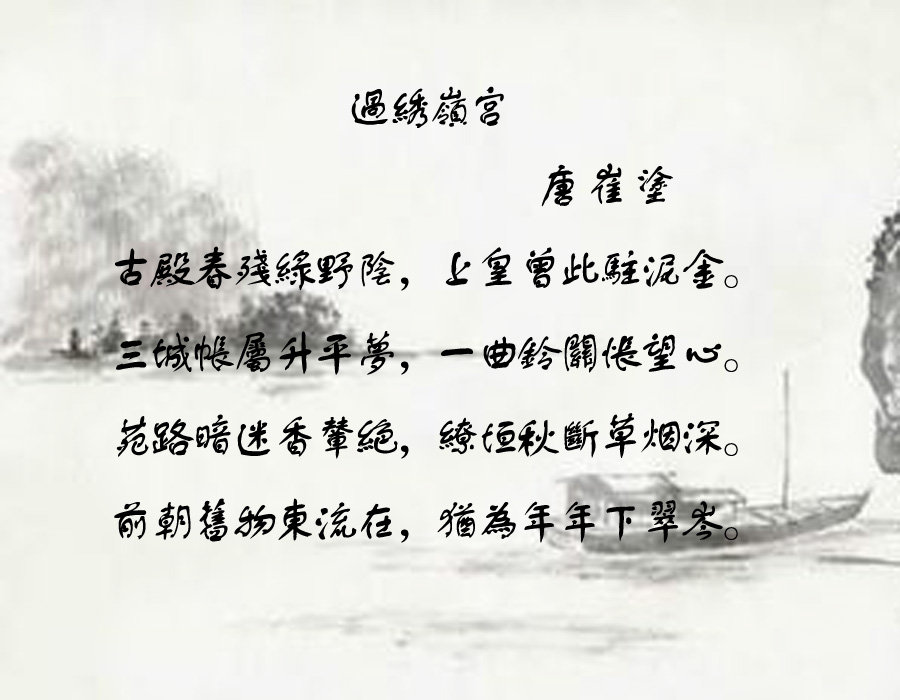 過綉嶺宮
唐 崔 塗
古殿春殘綠野陰，上皇曾此駐泥金。
三城帳屬升平夢，一曲鈴關悵望心。
苑路暗迷香輦絕，繚垣秋斷草烟深。
前朝舊物東流在，猶為年年下翠岑。